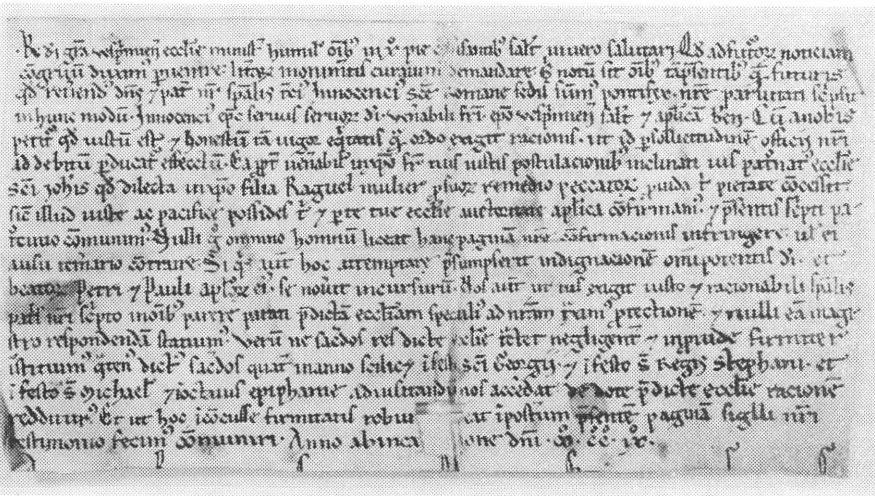 R. di gr̃a vesp̃miens̃ ecclie minist̃ humil oib; in x̃ pie saluari salt̃ in vero salutari. Q̃d ad futoꝝ noticiam
cõgruũ duxim; puenire litteꝝ monim̃tis cur̃ium; demandare. Hĩc notũ sit oib; tã psentib; q̃ futuris
qd reũend dñs ⁊ pat̃ nr̃ spalis t̃ci; Innocenci; sc̃e romane sedis sũm; pontifex. nr̃e paruitati sc̃psit
in hunc modũ. Innocenci; ep̃c servus servoꝝ di. venabili fri. epo vesp̃miens̃ salt̃ ⁊ aplicã ben̄. Cũ a nobis
petit̃ qd iustũ est ⁊ honestũ tã vigor eq̃tatis q̃ ordo exigit racionis. ut id p sollicitudinẽ officii nr̃i
ad debitũ pducat̃ effectũ. Ea ppt̃ venabil in xp̃o fr̃ tuis iustis postulacionib; inclinati ius pat̃nat; ecclie
sc̃i ioh̃is qd dilecta in xp̃o filia Raguel mulier p suoꝝ remedio peccatoꝝ puida t̃ pietate cõcessit
sic̃ illud iuste ac pacifice possides t̃ ⁊ p te tue ecclie auctoritate aplica cõfirmam; ⁊ psentis sc̃pti pa-
t̃cinio cõmunim;. Nulli g̃ omnino hominũ liceat hanc paginã nr̃e cõfirmacionis infringere. ul ei
ausu tem̃ario cõtraire. Si q̃s aut̃ hoc attemptare psumpserit indignacionẽ omipotentis di. et
beatoꝝ Petri ⁊ Pauli aploꝝ ei; se nouit̃ incursurũ. Nos aut̃ ut ius exigit iusto ⁊ racionabili spalis
patis nr̃i sc̃pto in oib; parere parati pdictã ecclesiam speciali ad nr̃am t̃xim; ptectionẽ. ⁊ nulli eã magi-
stro respondendã statuim;. Verũ ne sac̃dos res dicte ecclie t̃ctet negligent̃ ⁊ inpuide firmiter
istituim; q̃ten; dict; sac̃dos quat̃ in anno scilic; i festo sc̃i Georgii ⁊ i festo s̃ Regis Stephani. et
i festo s̃ Michael ⁊ i octauis epiphanie ad uisitandũ nos accedat de dote pdicte ecclie racionẽ
redditur;. Et ut hoc icõcusse firmitatis robur at i postum psentẽ paginã sigilli nr̃i
testimonio fecim; cõmuniri. Anno ab inca one dñi. Ꝏ. CC. IX.